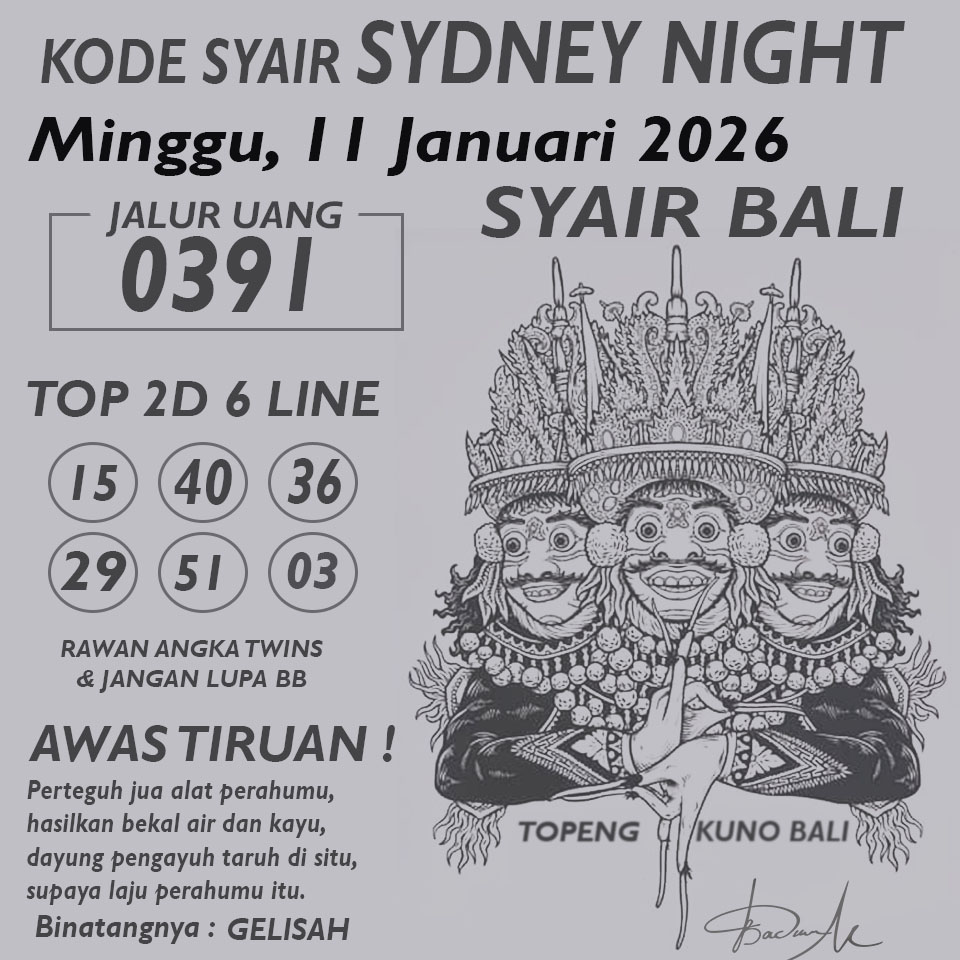 KODE SYAIR SYDNEY NIGHT
Minggu, 11 Januari 2026
SYAIR BALI
JALUR UANG
0391
TOP 2D 6 LINE
15 40 36
29 51 03
RAWAN ANGKA TWINS
& JANGAN LUPA BB
AWAS TIRUAN !
Perteguh jua alat perahumu,
hasilkan bekal air dan kayu,
dayung pengayuh taruh di situ,
supaya laju perahumu itu.
Binatangnya : GELISAH
TOPENG KUNO BALI